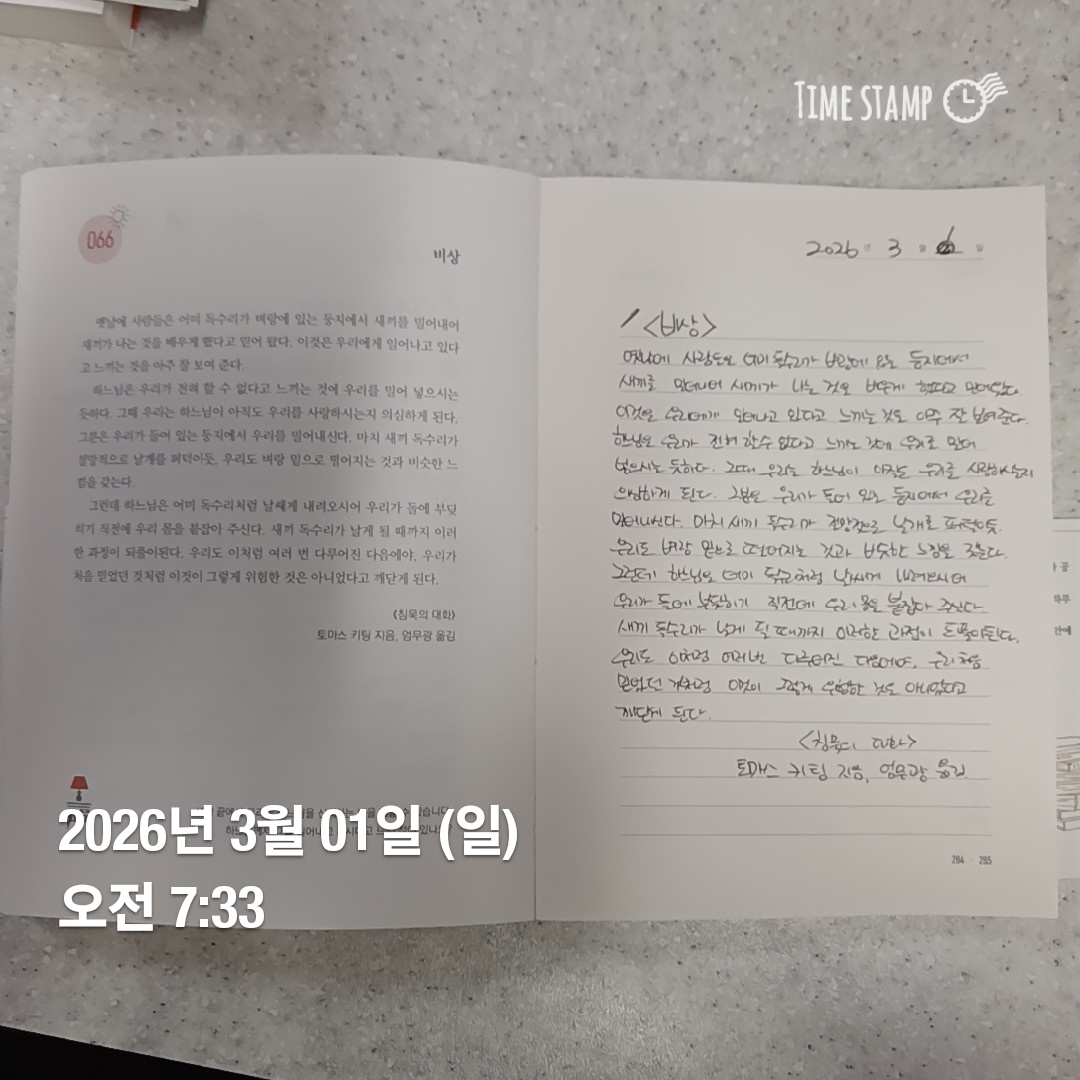 TIME STAMP
066
비상
옛날에 사람들은 어미 독수리가 벼랑에 있는 둥지에서 새끼를 밀어내어
새끼가 나는 것을 배우게 했다고 믿어 왔다. 이것은 우리에게 일어나고 있다
고 느끼는 것을 아주 잘 보여 준다.
하느님은 우리가 전혀 할 수 없다고 느끼는 것에 우리를 밀어 넣으시는
듯하다. 그때 우리는 하느님이 아직도 우리를 사랑하시는지 의심하게 된다.
그분은 우리가 들어 있는 둥지에서 우리를 밀어내신다. 마치 새끼 독수리가
절망적으로 날개를 퍼덕이듯, 우리도 벼랑 밑으로 떨어지는 것과 비슷한 느
낌을 갖는다.
그런데 하느님은 어미 독수리처럼 날쌔게 내려오시어 우리가 돌에 부딪
히기 직전에 우리 몸을 붙잡아 주신다. 새끼 독수리가 날게 될 때까지 이러
한 과정이 되풀이된다. 우리도 이처럼 여러 번 다루어진 다음에야, 우리가
처음 믿었던 것처럼 이것이 그렇게 위험한 것은 아니었다고 깨닫게 된다.
《침묵의 대화》
토마스 키팅 지음, 엄무광 옮김
2026년 3월 01일 (일)
오전 7:33
2026 년 3 월 일
<비상>
옛날에 사람들은 어미 독수리가 벼랑에 있는 둥지에서
새끼를 밀어내어 새끼가 나는 것을 배우게 했다고 믿어왔다.
이것은 우리에게 일어나고 있다고 느끼는 것을 아주 잘 보여준다.
하느님은 우리가 전혀 할수 없다고 느끼는 것에 우리를 밀어
넣으시는 듯하다. 그때 우리는 하느님이 아직도 우리를 사랑하시는지
의심하게 된다. 그분은 우리가 들어 있는 둥지에서 우리를
밀어내신다. 마치 새끼 독수리가 절망적으로 날개를 퍼덕이듯,
우리도 벼랑 밑으로 떨어지는 것과 비슷한 느낌을 갖는다.
그런데 하느님은 어미 독수리처럼 날쌔게 내려오시어
우리가 돌에 부딪히기 직전에 우리 몸을 붙잡아 주신다.
새끼 독수리가 날게 될 때까지 이러한 과정이 되풀이된다.
우리도 이처럼 여러번 다루어진 다음에야, 우리 처음
믿었던 것처럼 이것이 그렇게 위험한 것은 아니었다고
깨닫게 된다.
<침묵의 대화>
토마스 키팅 지음, 엄무광 옮김.
284 · 285